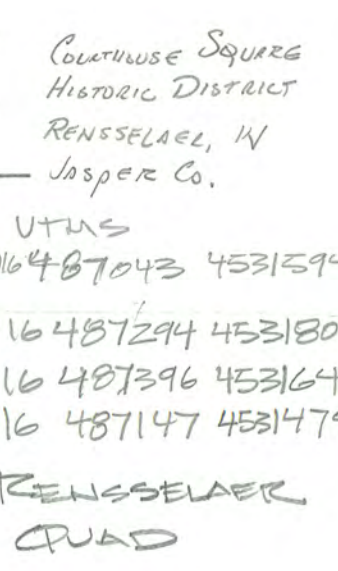 COURTHOUSE SQUARE
HISTORIC DISTRICT
RENSSELAER, IN
JASPER CO.
UTMS
16 487043 4531594
16 487294 453180
16 487396 453164
16 487147 453147
RENSSELAER
QUAD